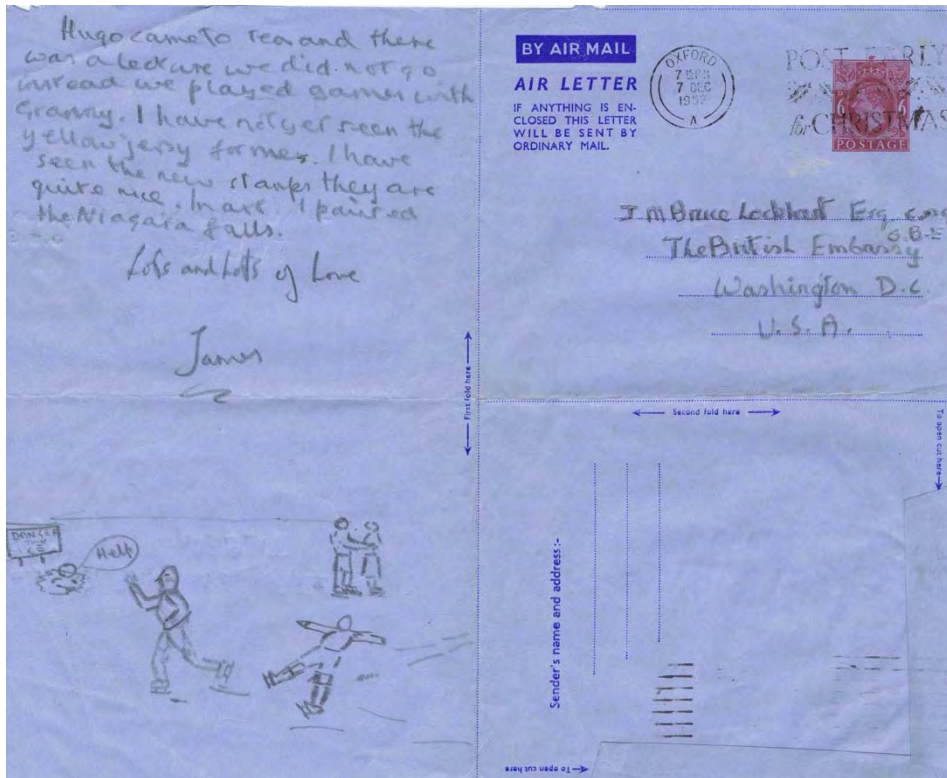 Hugo came to tea and there
was a lecture we did not go
instead we played games with
Granny. I have not yet seen the
yellow jersy for mes. I have
seen the new stamps they are
quite nice. In art I painted
the Niagara falls.
Lots and Lots of Love
James
DANGER
THIN
ICE
Help
First fold here
BY AIR MAIL
AIR LETTER
IF ANYTHING IS EN-
CLOSED THIS LETTER
WILL BE SENT BY
ORDINARY MAIL.
OXFORD
7 DEC
1952
A
POST EARLY
for CHRISTMAS
6 6
POSTAGE
J M Bruce Lockhart Esq
The British Embassy
Washington D.C.
U.S.A.
Second fold here
To open cut here
Sender's name and address:-
To open cut here